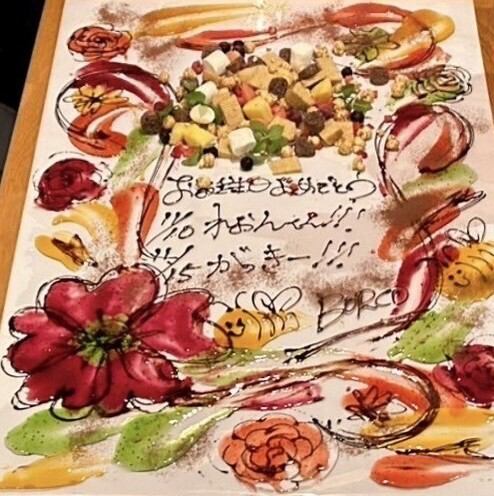 お誕生日おめでとう
11/10 れおんくん!!!
11/15 がっきー!!!
BORCO